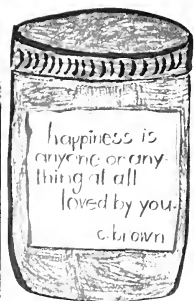 happiness is
anyone or any-
thing at all
loved by you.
c. brown